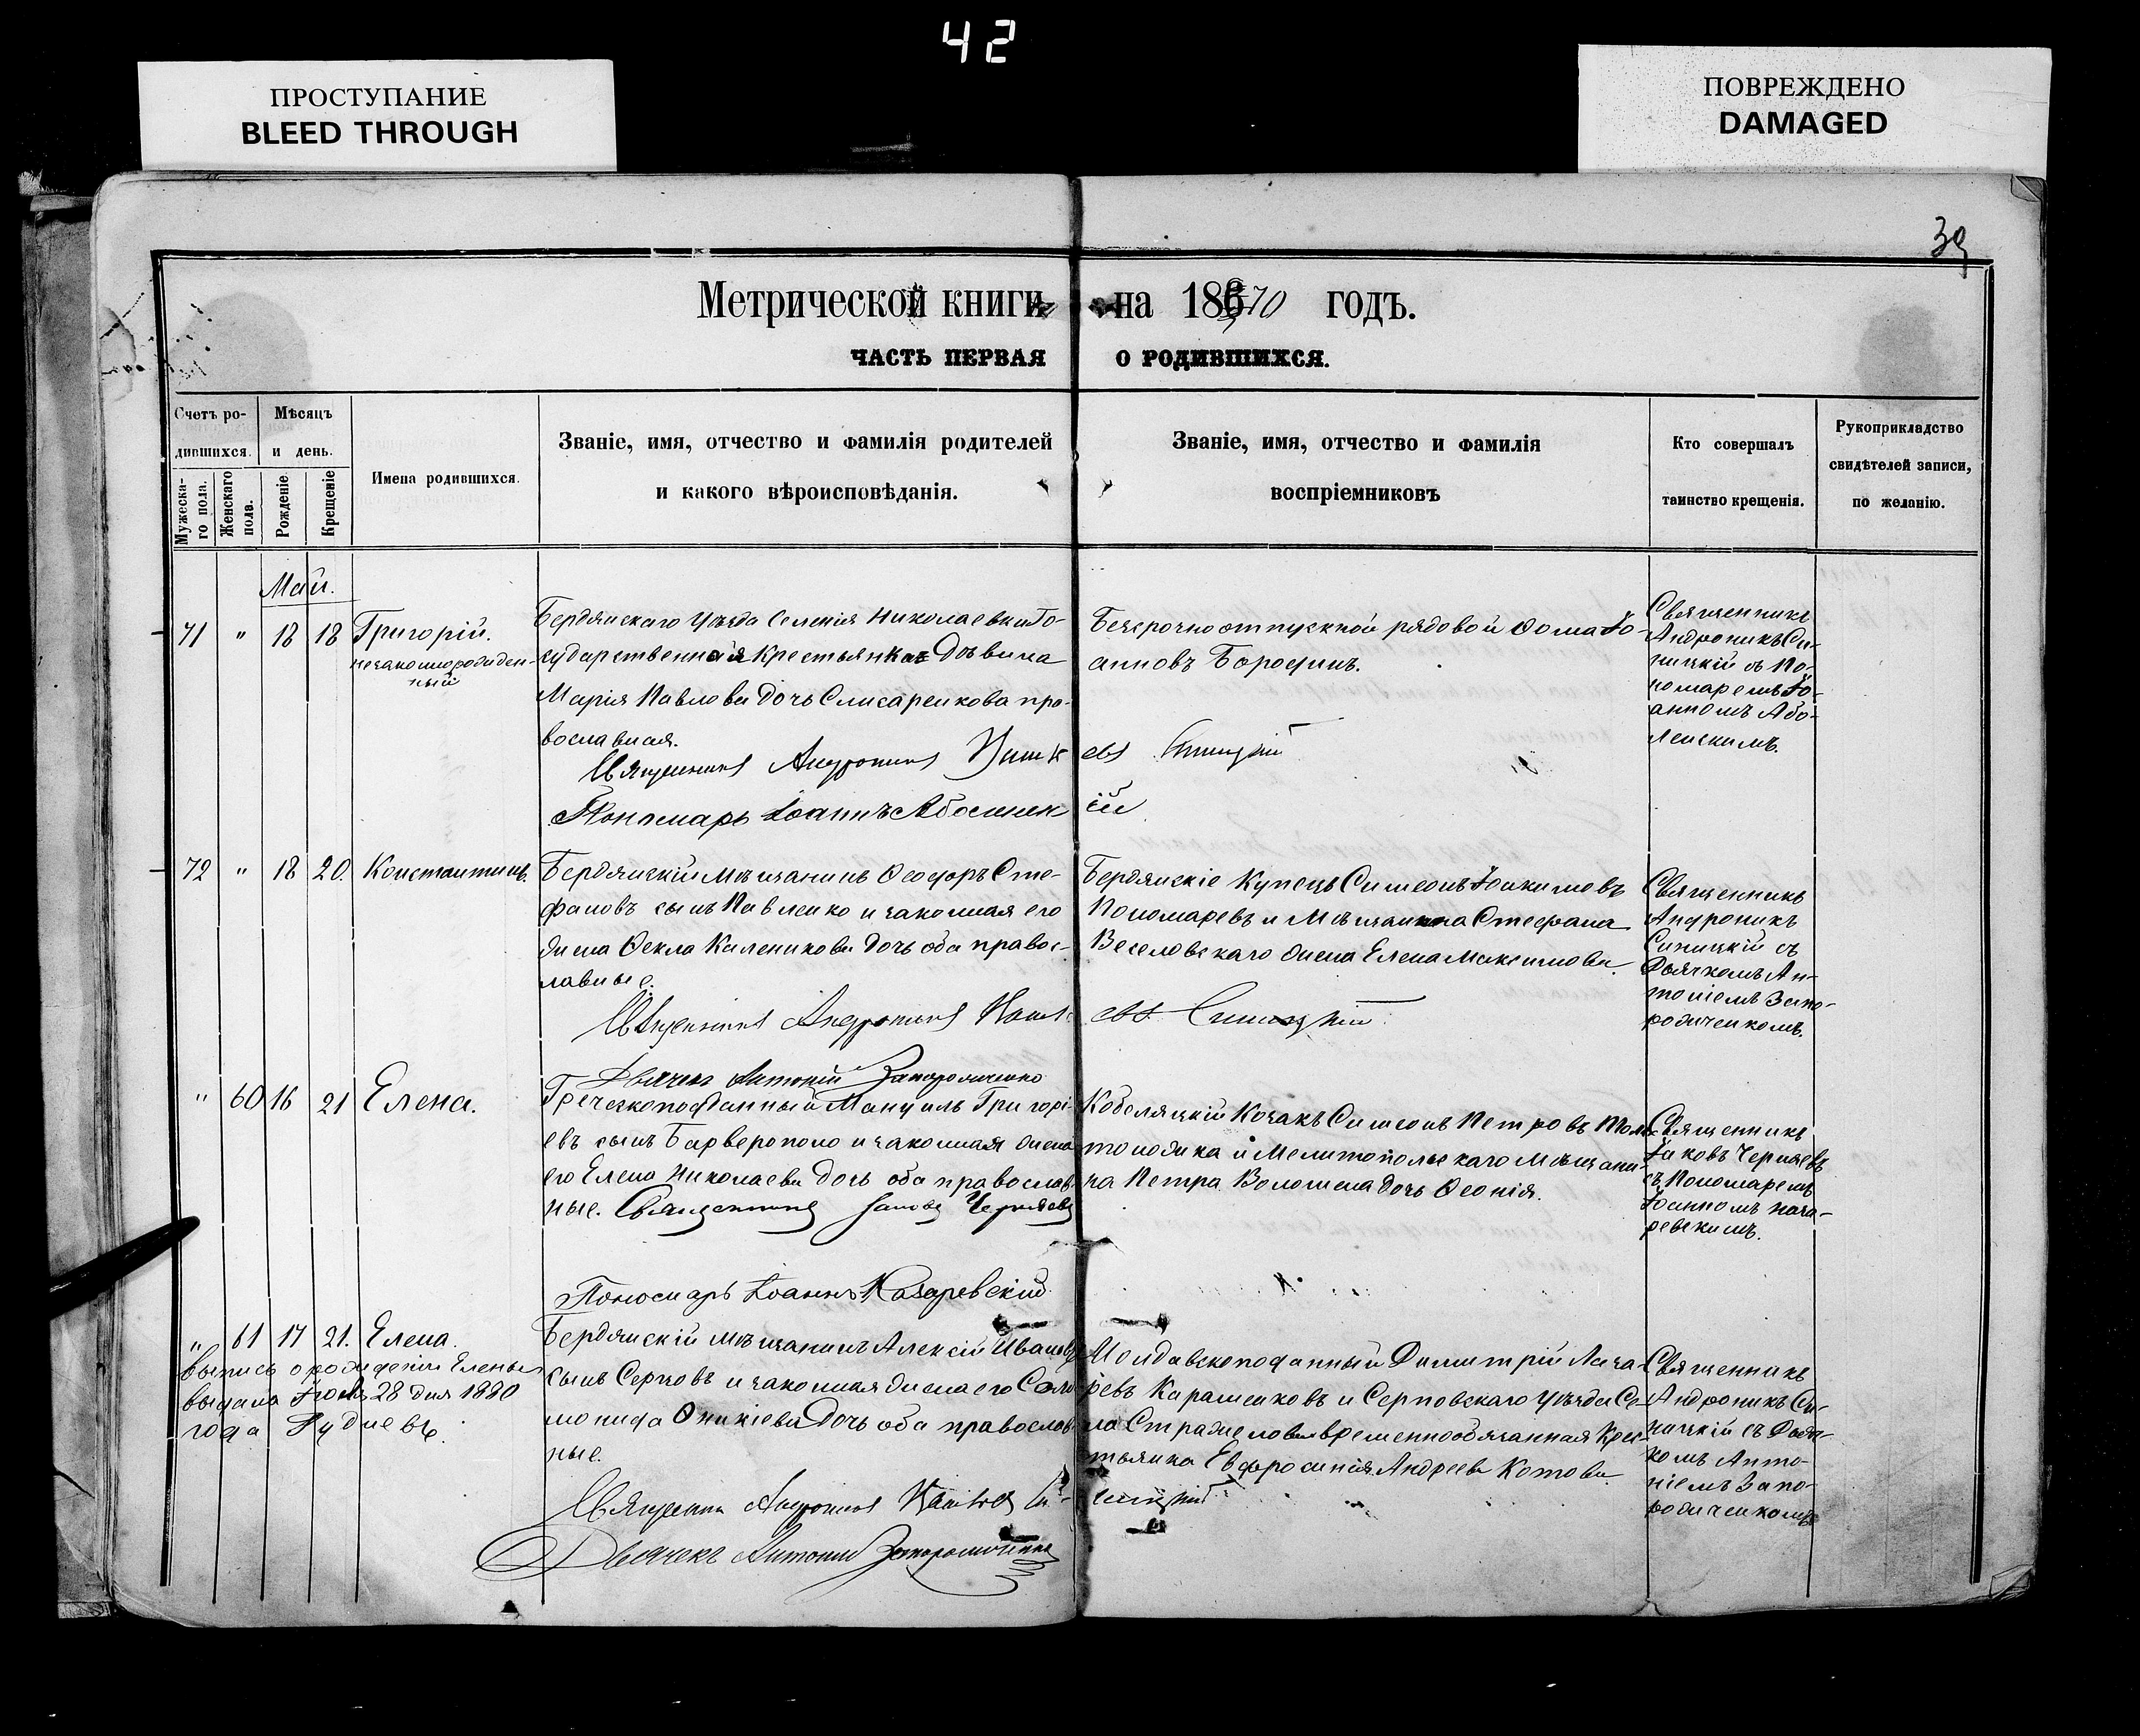 42
ПРОСТУПАНИЕ
BLEED THROUGH
ПОВРЕЖДЕНО
DAMAGED
39
Метрической книги на 1870 годъ.
ЧАСТЬ ПЕРВАЯ О РОДИВШИХСЯ.
Счетъ ро-
дившихся.
Мужеска-
го пола.
Женскаго
пола.
Мѣсяцъ
и день.
Рожденіе.
Крещеніе
Имена родившихся.
Званіе, имя, отчество и фамилія родителей
и какого вѣроисповѣданія.
Званіе, имя, отчество и фамилія
воспріемниковъ
Кто совершалъ
таинство крещенія.
Рукоприкладство
свидѣтелей записи,
по желанію.
Май.
71 " 18 18 Григорій.
незаконорожден-
ный
Бердянскаго Уѣзда Селенія Николаевки Го-
сударственная Крестьянка Дѣвица
Марія Павлова дочь Слисаренкова пра-
вославная.
Священникъ Андроникъ
Пономарь Іоаннъ
Безсрочноотпускной рядовой Ѳома Іо-
анновъ Бородинъ.
Синицкій
Священникъ
Андроникъ Си-
ницкій съ По-
номаремъ Іо-
анномъ Або-
ленскимъ.
72 " 18 20. Константинъ.
Бердянскій мѣщанинъ Ѳеодоръ Сте-
фановъ сынъ Павленко и законная его
жена Ѳекла Каленикова дочь оба правос-
лавные.
Священникъ Андроникъ
Дьячекъ Антоній Запорожченко
Бердянскіе Купецъ Симеонъ Іоакимовъ
Пономаревъ и Мѣщанина Стефана
Веселовскаго жена Елена Максимова.
Синицкій
Священникъ
Андроникъ
Синицкій съ
Дьячкомъ Ан-
тоніемъ Запо-
рожченкомъ.
" 60 16 21 Елена.
Греческоподданный Мануилъ Григорі-
евъ сынъ и законная жена
его Елена Николаева дочь оба православ-
ные. Священникъ Іаковъ Черняевъ
Пономарь Іоаннъ Назаревскій
Кобеляцкій Козакъ Симеонъ Петровъ
и Мелитопольскаго мѣщани-
на Петра Волошена дочь Ѳеонія.
Священникъ
Іаковъ Черняевъ
съ Пономаремъ
Іоанномъ Наза-
ревскимъ.
" 61 17 21. Елена.
выпись о рожденіи Елены
выдана 28 дня 1880
года
Бердянскій мѣщанинъ Алексій Ивановъ
сынъ Серповъ и законная жена его Соло-
монида дочь оба православ-
ные.
Священникъ Андроникъ
Дьячекъ Антоній Запорожченко
Молдавскоподанный Димитрій Лаза-
ревъ и Серповскаго Уѣзда Се-
ла временнообязанная Крес-
тьянка Евфросинія Андреева Котова
Священникъ
Андроникъ Си-
ницкій съ Дьяч-
комъ Анто-
ніемъ Запо-
рожченкомъ